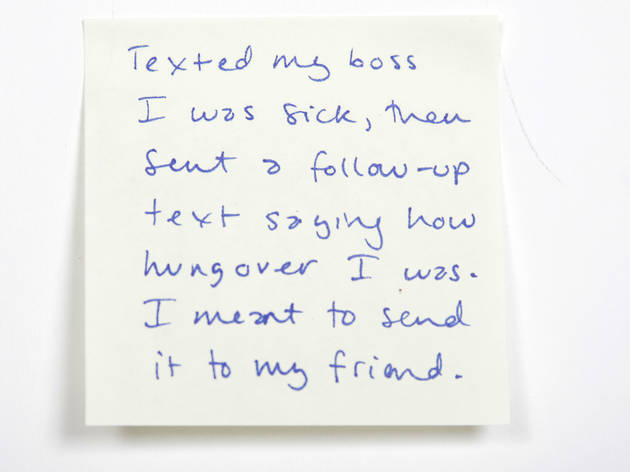 Texted my boss
I was sick, then
sent a follow-up
text saying how
hungover I was.
I meant to send
it to my friend.